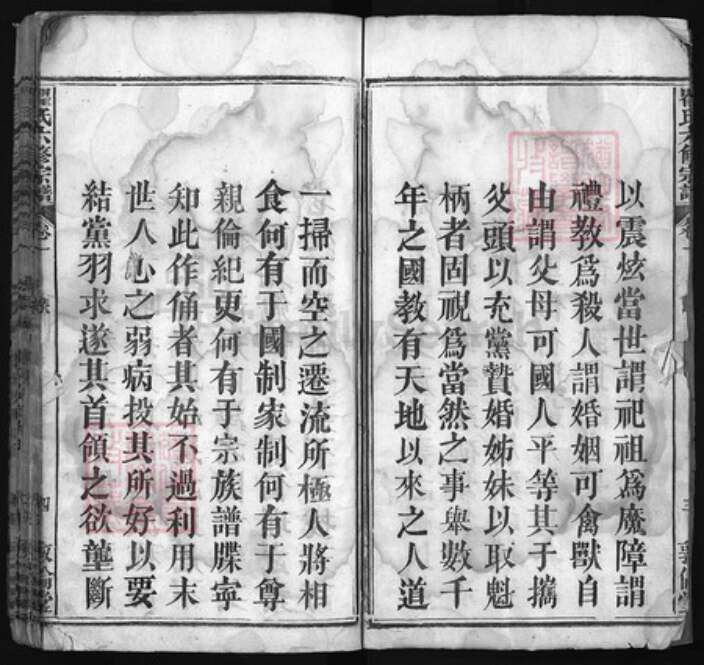 以震炫當世謂祀祖為魔障謂
禮教為殺人謂婚姻可禽獸自
由謂父母可國人平等其于攜
父頭以充黨贄婚姊妹以取魁
柄者固視為當然之事舉數千
年之國教有天地以來之人道
一掃而空之遷流所極人將相
食何有于國制家制何有于尊
親倫紀更何有于宗族譜牒寧
知此作俑者其始不過利用末
世人心之弱病投其所好以要
結黨羽求遂其首領之欲壟斷
瞿氏六修宗譜
卷一
四